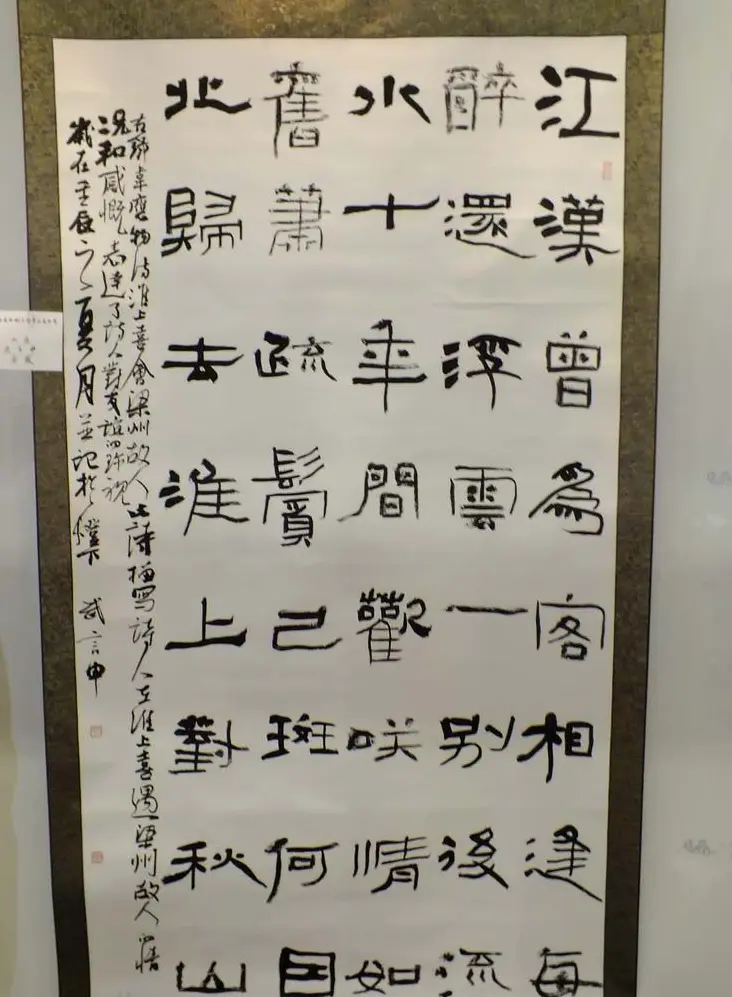 江漢曾爲客相逢每
醉還浮雲一别後流
水十年間歡咲情如
舊蕭疏鬢已斑何因
北歸去淮上對秋山
右録韋應物詩淮上喜會梁州故人此詩描寫詩人在淮上喜遇梁州故人的情
況和感慨表達了詩人對友誼的珍視
歲在壬辰之夏月並記於燈下 武言申